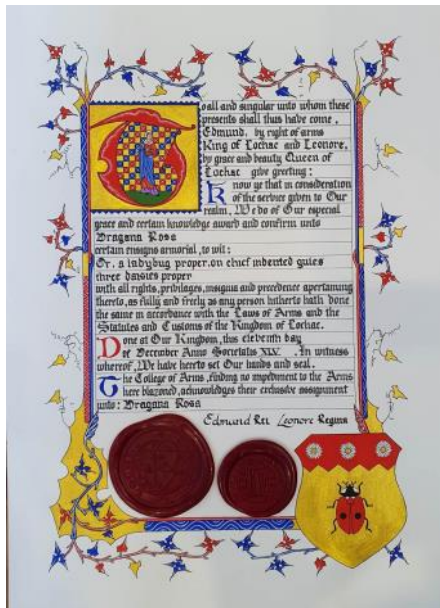 To all and singular unto whom these
presents shall thus have come,
Edmund, by right of arms
King of Lochac and Leonore,
by grace and beauty Queen of
Lochac give greeting:
Know ye that in consideration
of the service given to Our
realm, We do of Our especial
grace and certain knowledge award and confirm unto
Dragana Rosa
certain ensigns armorial, to wit:
Or, a ladybug proper, on chief indented gules
three daisies proper
with all rights, privilages, insignia and precedence apertaining
thereto, as fully and freely as any person hitherto hath done
the same in accordance with the Laws of Arms and the
Statutes and Customs of the Kingdom of Lochac.
Done at Our Kingdom, this eleventh day
of December Anno Societatis XLV. In witness
whereof, We have hereto set Our hands and seal.
The College of Arms, finding no impediment to the Arms
here blazoned, acknowledges their exclusive assignment
unto: Dragana Rosa
Edmund Rex Leonore Regina